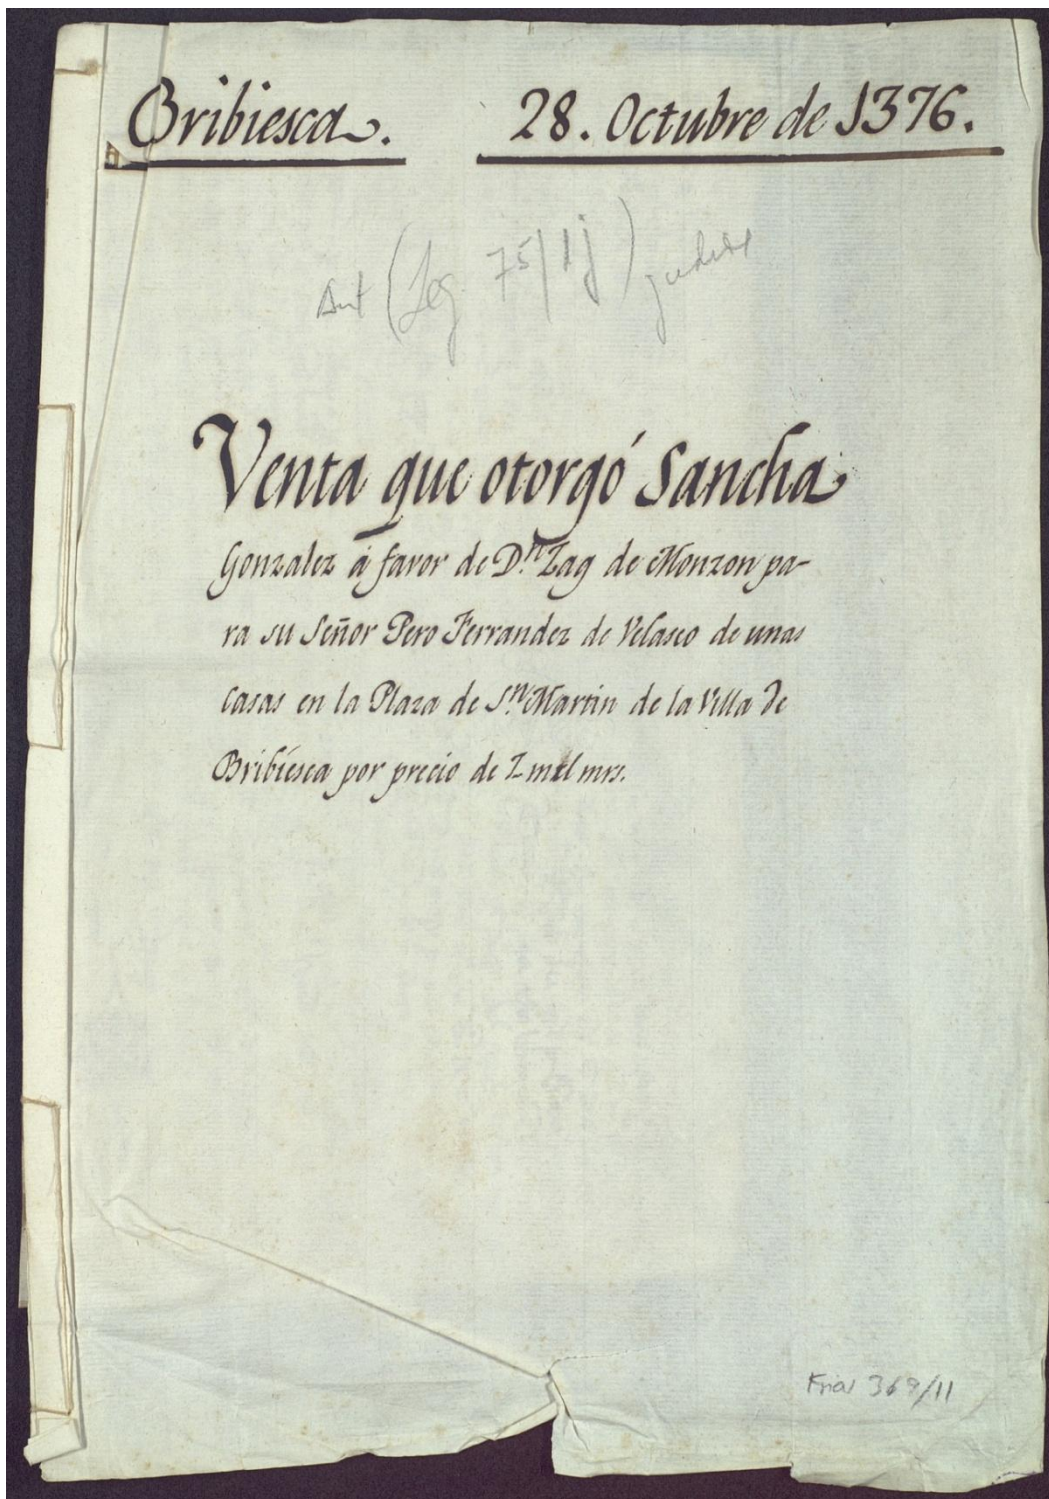 Bribiesca. 28. Octubre de 1376.
Ant (Leg. 75/1j)
Venta que otorgó Sancha
Gonzalez á favor de D.ⁿ Zag de Monzon pa-
ra su Señor Pero Ferrandez de Velasco de unas
casas en la Plaza de S.ⁿ Martin de la Villa de
Bribiesca por precio de 2 mil mrs.
Frias 369/11